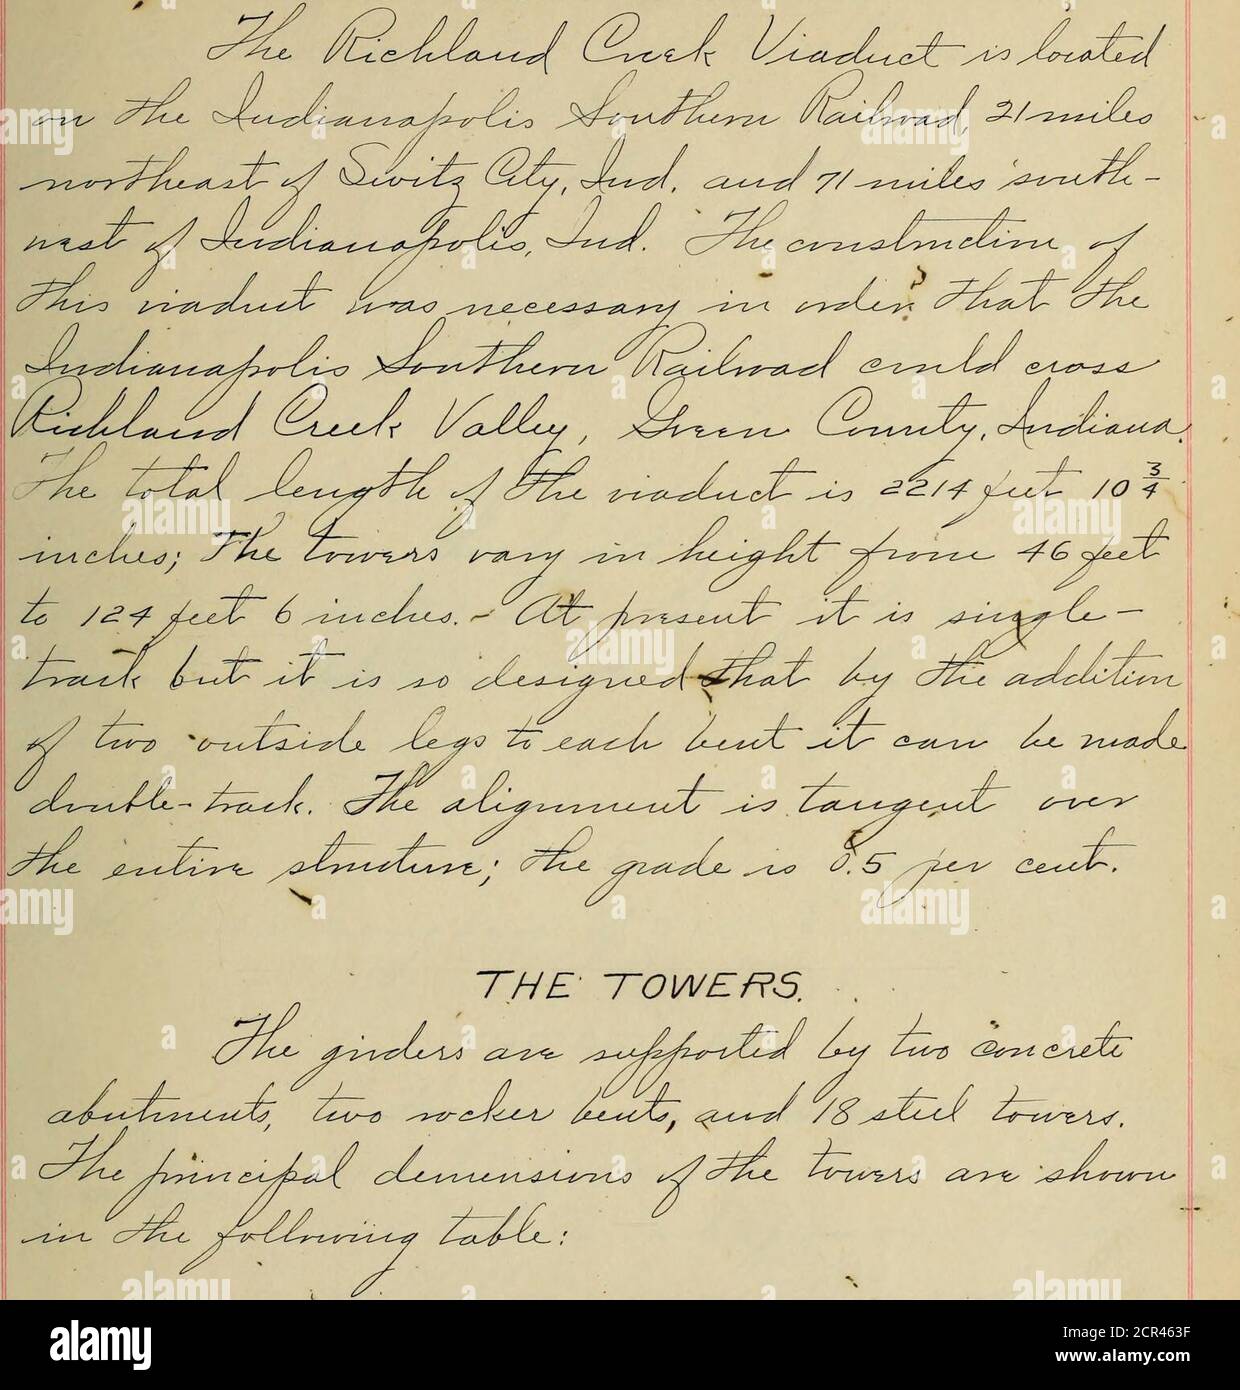 The Richland Creek Viaduct is located
on the Indianapolis Southern Railroad, 21 miles
northeast of Switz City, Ind. and 71 miles south-
west of Indianapolis, Ind. The construction of
this viaduct was necessary in order that the
Indianapolis Southern Railroad could cross
Richland Creek Valley, Green County, Indiana.
The total length of the viaduct is 2214 feet 10 3/4
inches; The towers vary in height from 46 feet
to 124 feet 6 inches. - At present it is single-
track but it is so designed that by the addition
of two outside legs to each bent it can be made
double-track. The alignment is tangent over
the entire structure; the grade is 0.5 per cent.
THE TOWERS.
The girders are supported by two concrete
abutments, two rocker bents, and 18 steel towers.
The principal demensions of the towers are shown
in the following table:
alamy
Image ID: 2CR463F
www.alamy.com